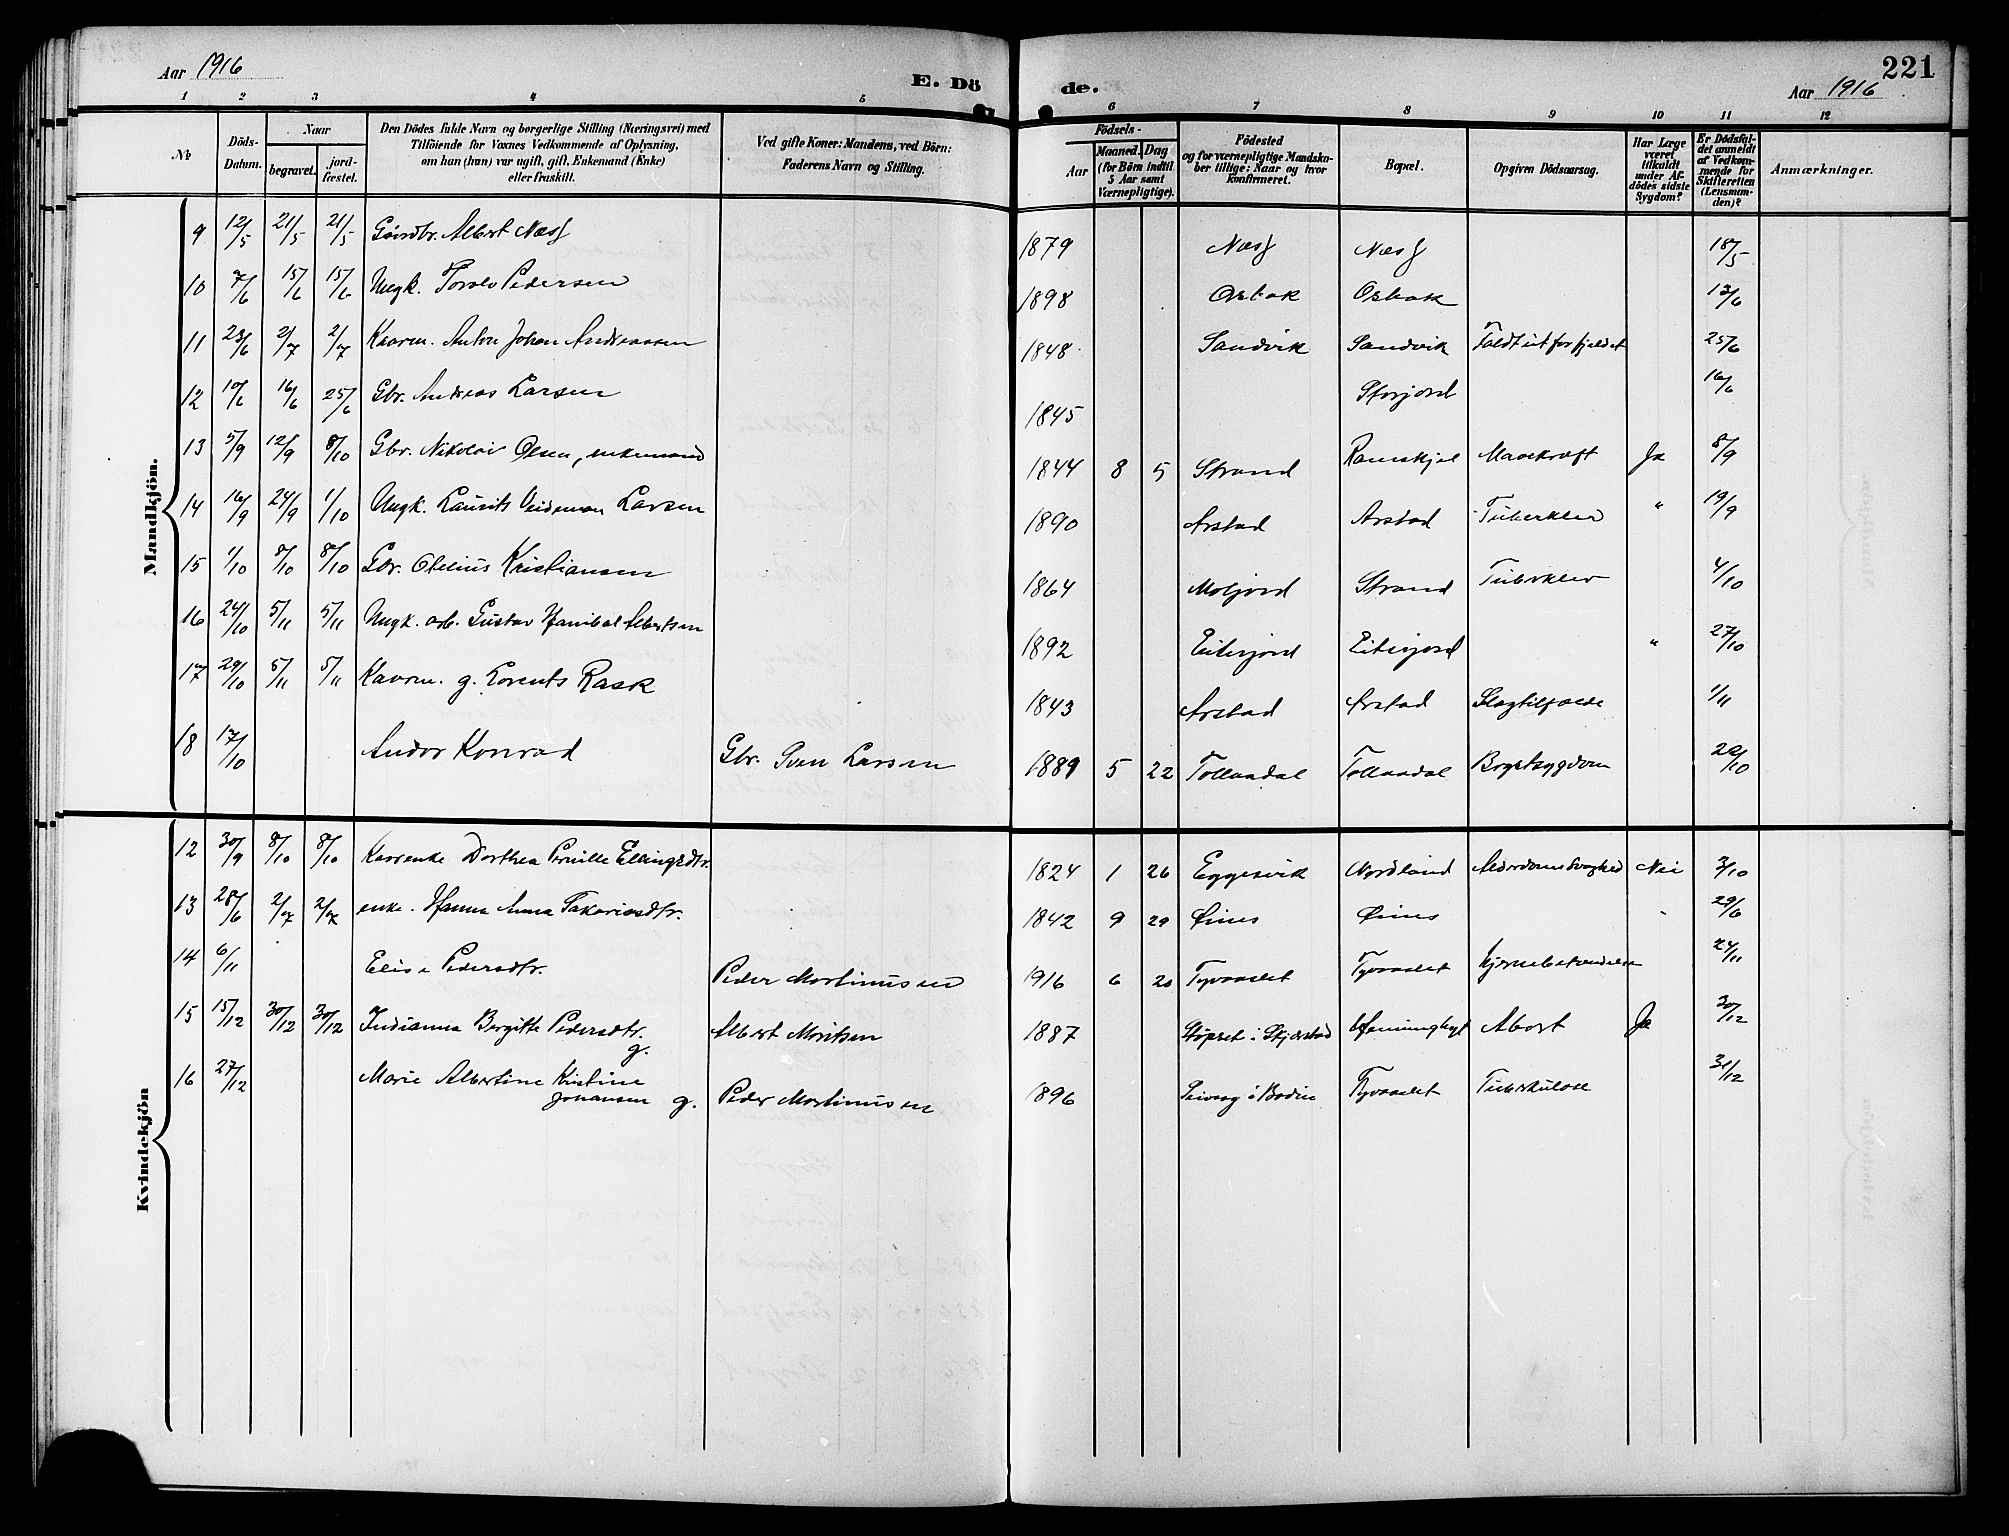 Aar 1916
E. Dö
de.
Aar 1916
221
1 2 3 4 5
6 7 8 9 10 11 12
No
Döds-Datum.
Naar
begravet.
jord-fæstet.
Den Dödes fulde Navn og borgerlige Stilling (Næringsvei) med
Tilföiende for Voxnes Vedkommende af Oplysning,
om han (hun) var ugift, gift, Enkemand (Enke)
eller fraskilt.
Ved gifte Koner: Mandens, ved Börn:
Faderens Navn og Stilling.
Födsels-
Aar
Maaned. Dag
(for Börn indtil
5 Aar samt
Værnepligtige).
Födested
og for værnepligtige Mandska-
ber tillige: Naar og hvor
konfirmeret.
Bopæl.
Opgiven Dödsaarsag.
Har Læge
været
tilkaldt
under Af-
dödes sidste
Sygdom?
Er Dödsfal-
det anmeldt
af Vedkom-
mende for
Skifteretten
(Lensman-
den)?
Anmærkninger.
Mandkjön.
9 12/5 21/5 21/5 Gårdbr. Albert Næss 1879 Næss Næss 18/5
10 7/6 15/6 15/6 Ungk. Torolv Pedersen 1898 Osbak Osbak 13/6
11 23/6 2/7 2/7 Kaarm. Anton Johan Andreassen 1848 Sandvik Sandvik Faldt ut for fjeldet 25/6
12 10/6 16/6 25/6 Gbr. Andreas Larsen 1845 Storjord 16/6
13 5/9 12/9 8/10 Gbr. Nikolai Olsen, enkemand 1844 8 5 Strand Ramskjel Mavekræft Ja 8/9
14 16/9 24/9 1/10 Ungk. Laurits Veideman Larsen 1890 Arstad Arstad Tuberkler " 19/9
15 1/10 8/10 8/10 Gbr. Otelius Kristiansen 1864 Moljord Strand Tuberkler 4/10
16 24/10 5/11 5/11 Ungk. arb. Gustav Hanibal Albertsen 1892 Eiterjord Eiterjord " 27/10
17 29/10 5/11 5/11 Kaarm. g. Lorents Rask 1843 Arstad Arstad Slagtilfælde 1/11
18 17/10 Andor Konrad Gbr. Sven Larsen 1889 5 22 Tollaadal Tollaadal Brystsygdom 22/10
Kvindekjön
12 30/9 8/10 8/10 Kaarenke Dorthea Pernille Ellingsdtr. 1824 1 26 Eggesvik Nordland Alderdomssvaghed Nei 3/10
13 28/6 2/7 2/7 enke. Hanna Anna Sakariasdtr. 1842 9 29 Øines Øines 29/6
14 6/11 Elise Pedersdtr. Peder Martinussen 1916 6 20 Tyvaaslet Tyvaaslet Hjernebetændelse 24/11
15 15/12 30/12 30/12 Indianna Bergitte Pedersdtr. g. Albert Moritsen 1887 i Skjerstad Abort Ja 30/12
16 27/12 Marie Albertine Kristine
Johansen g. Peder Martinussen 1896 i Bodin Tyvaaslet Tuberkulose 31/12